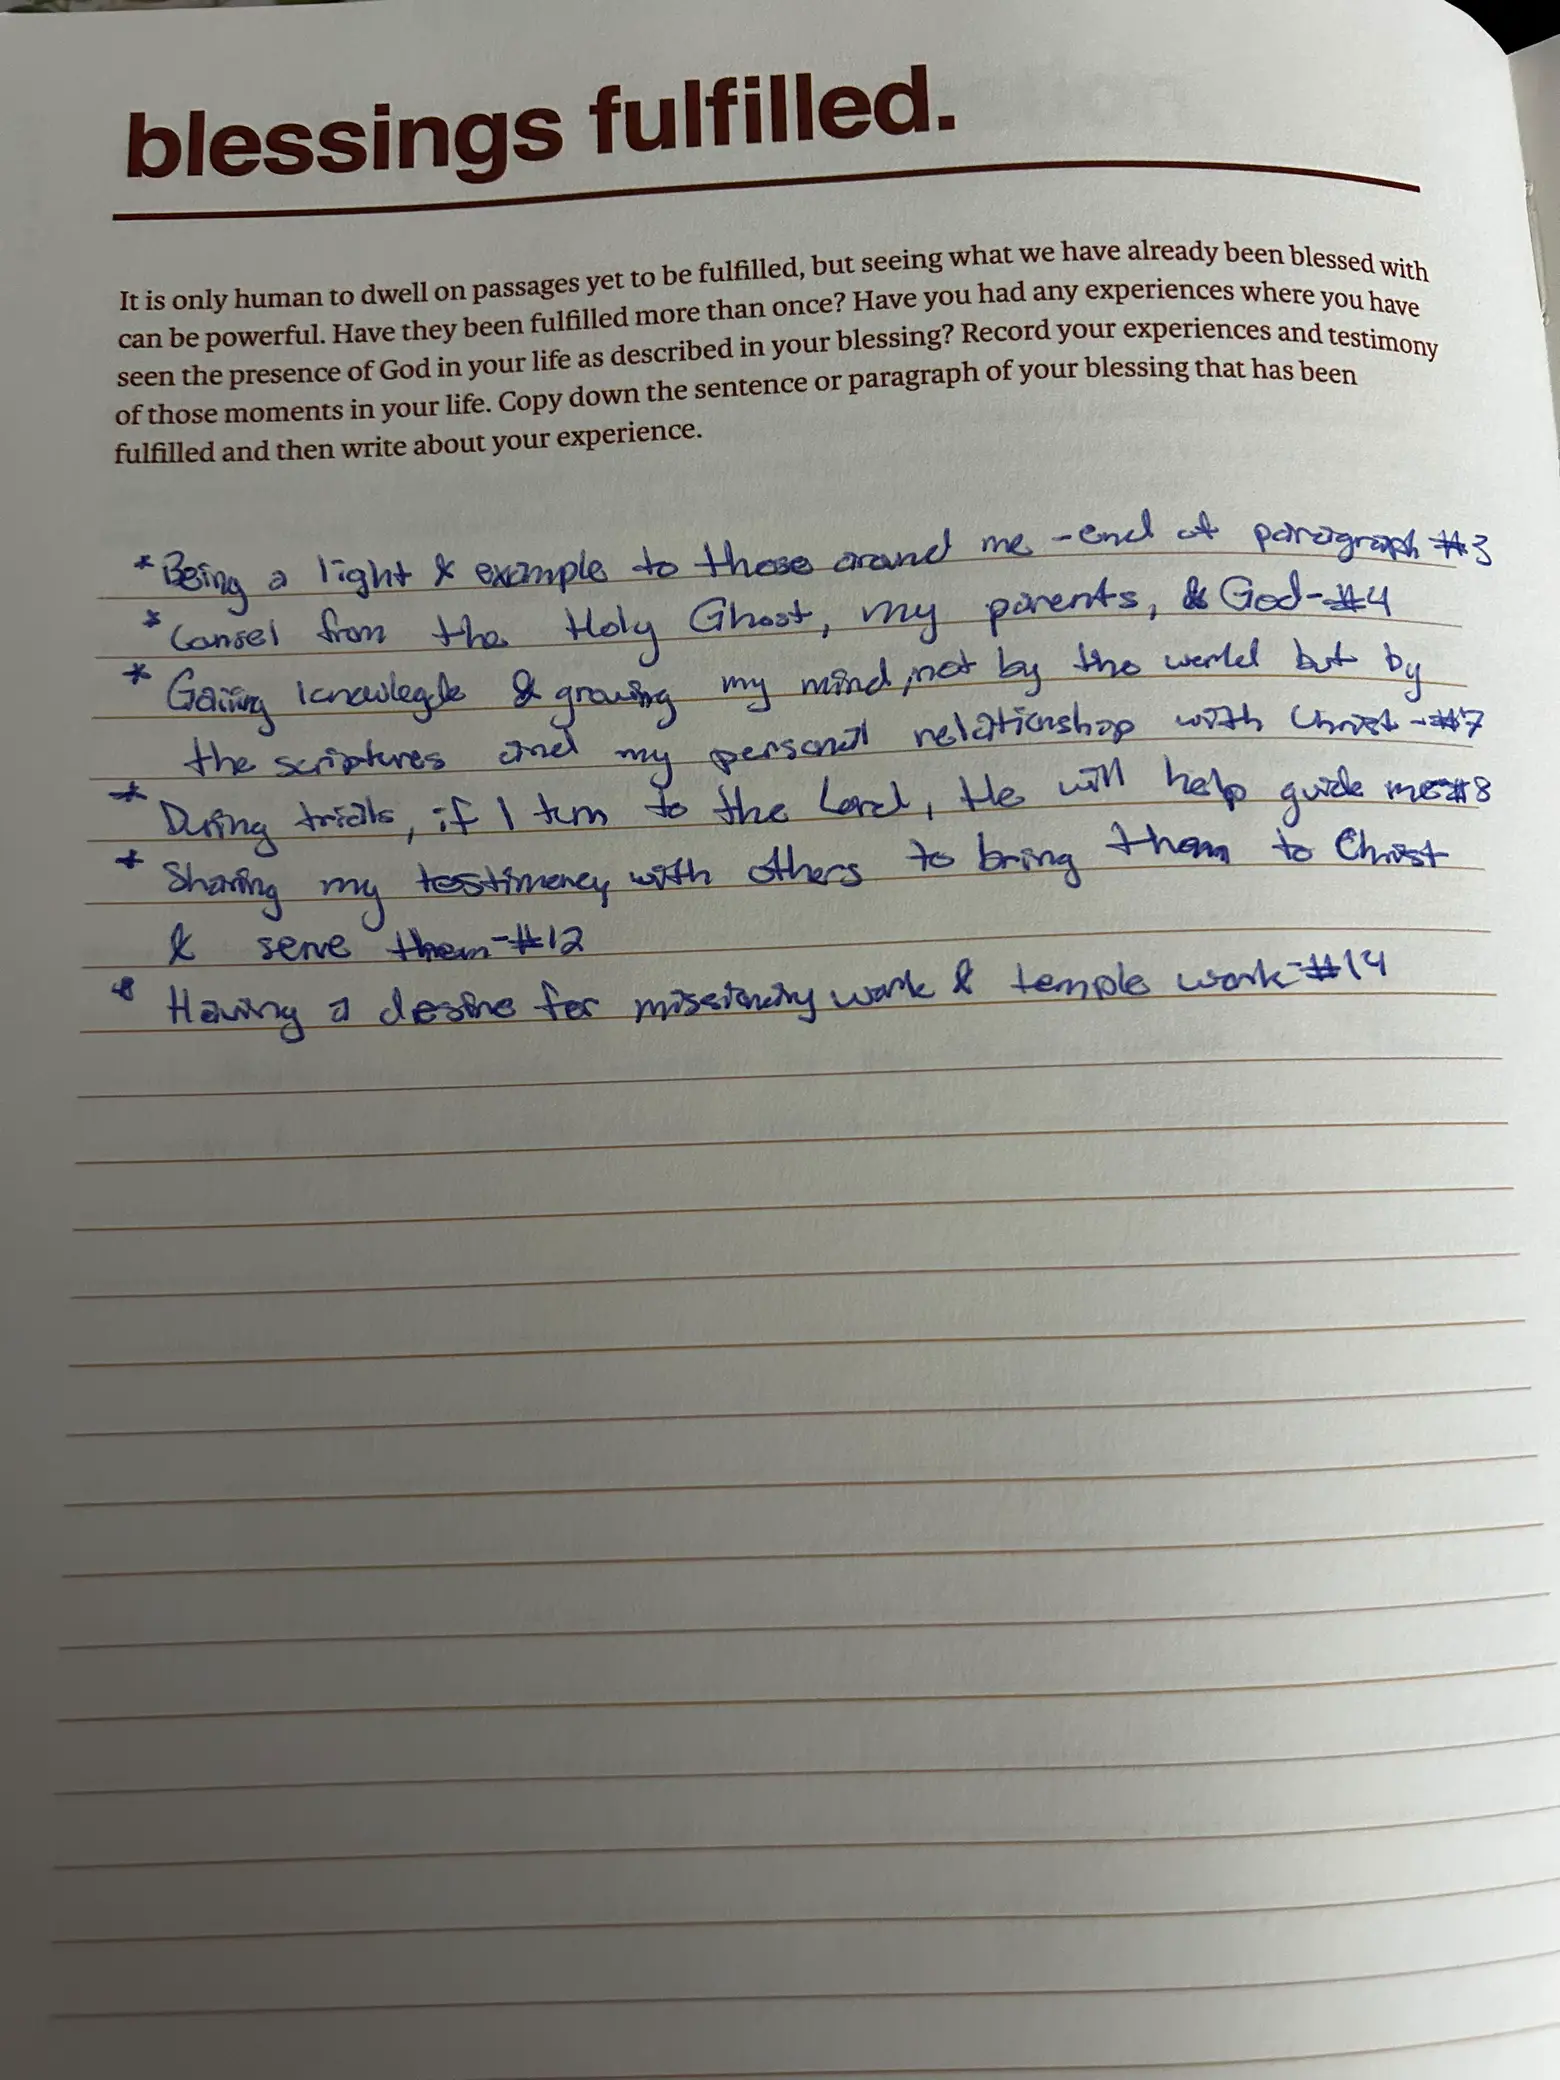 blessings fulfilled.
It is only human to dwell on passages yet to be fulfilled, but seeing what we have already been blessed with
can be powerful. Have they been fulfilled more than once? Have you had any experiences where you have
seen the presence of God in your life as described in your blessing? Record your experiences and testimony
of those moments in your life. Copy down the sentence or paragraph of your blessing that has been
fulfilled and then write about your experience.
* Being a light & example to those around me - end of paragraph #3
* Consel from the Holy Ghost, my parents, & God - #4
* Gaiing knowlegde & growing my mind, not by the world but by
the scriptures and my personal relationship with Christ - #7
* During trials, if I turn to the Lord, He will help guide me - #8
* Sharing my testimoney with others to bring them to Christ
& serve them - #12
* Having a desire for missionary work & temple work - #14